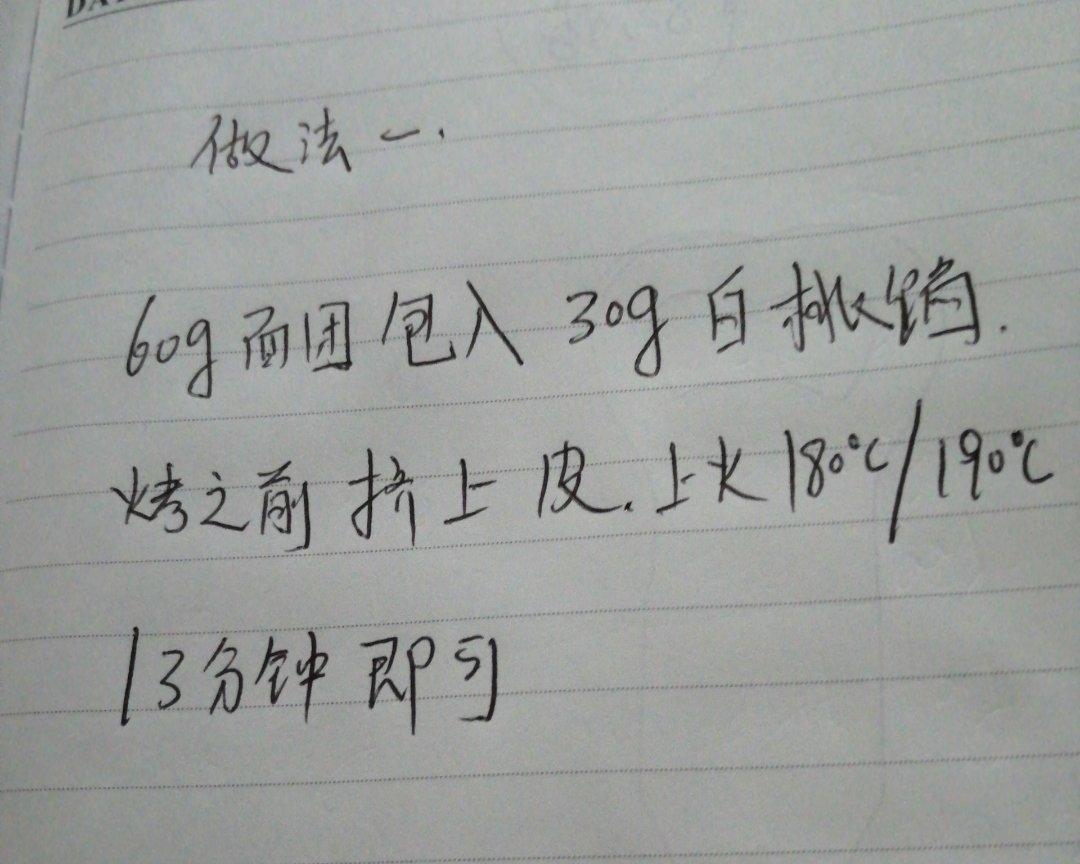 做法一.
60g面团包入30g白桃馅.
烤之前挤上皮.上火180℃/190℃
13分钟即可